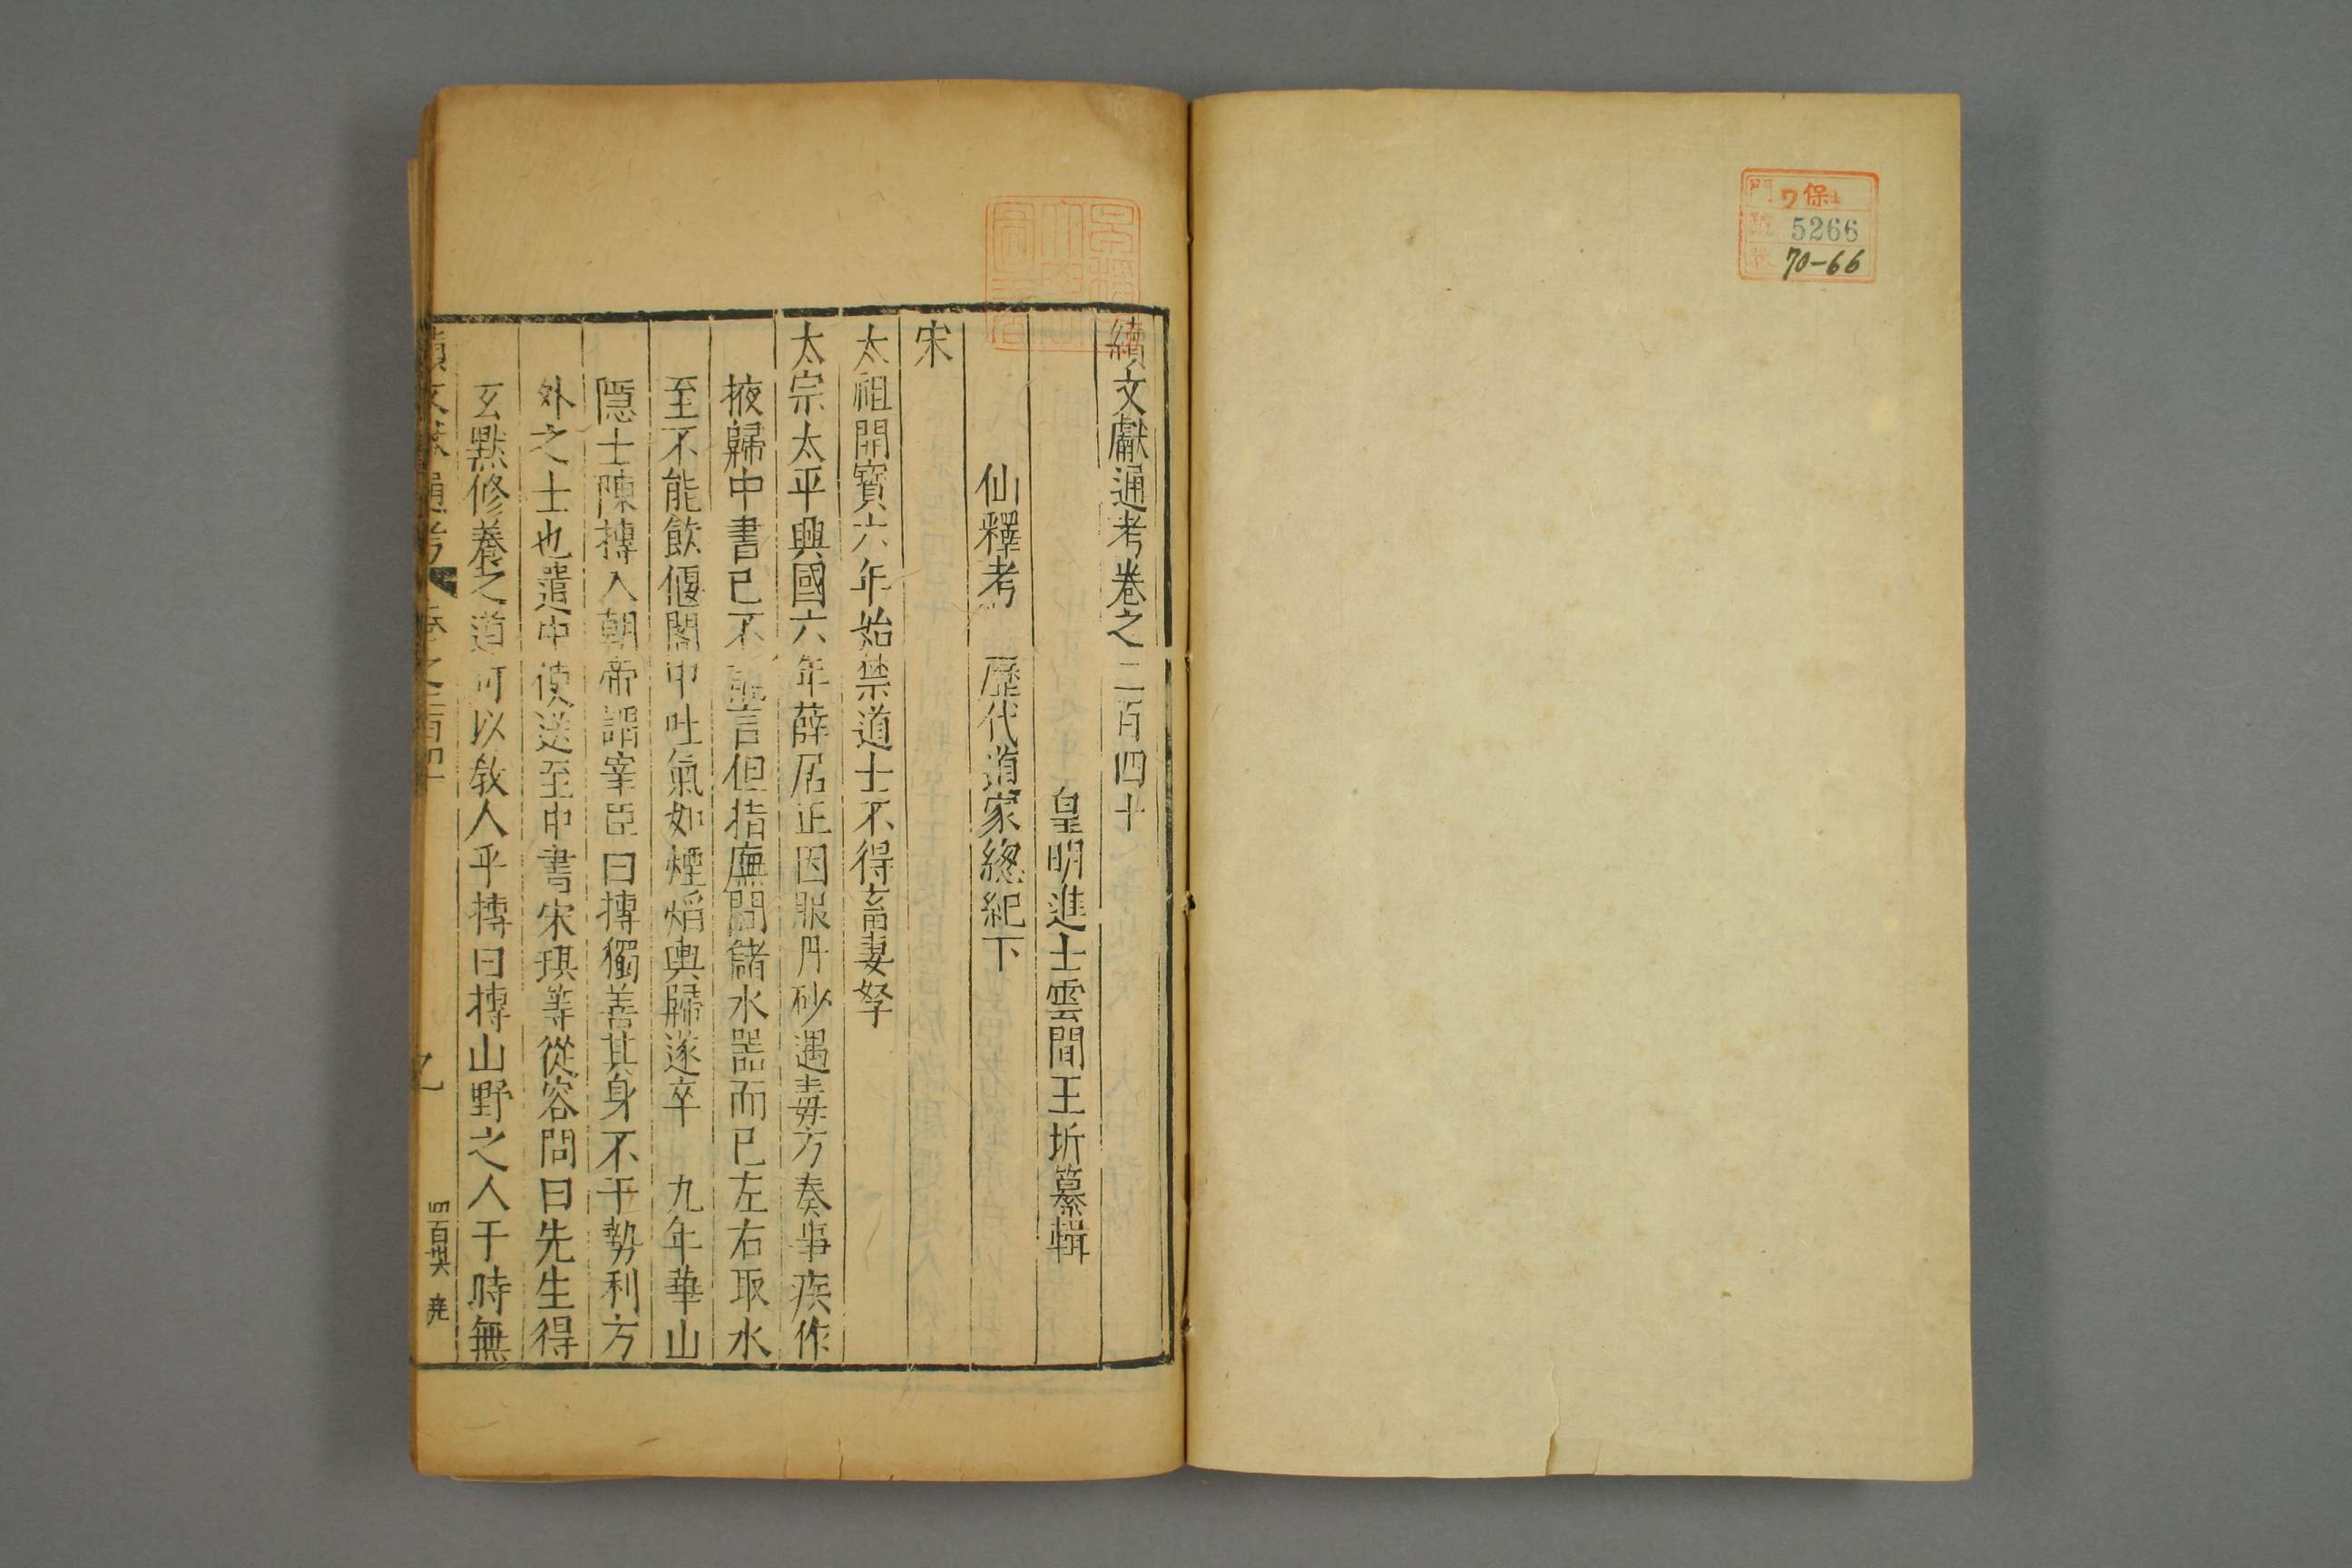 門 ワ保
號 5266
70-66
續文獻通考卷之二百四十
皇明進士雲間王圻纂輯
仙釋考 歷代道家總紀下
宋
太祖開寶六年始禁道士不得畜妻孥
太宗太平興國六年薛居正因服丹砂遇毒方奏事疾作
掖歸中書已不能言但指廡間儲水器而已左右取水
至不能飲偃閣中吐氣如煙焰輿歸遂卒 九年華山
隱士陳摶入朝帝謂宰臣曰摶獨善其身不干勢利方
外之士也遣中使送至中書宋琪等從容問曰先生得
玄默修養之道可以敎人乎摶曰摶山野之人于時無
續文獻通考 卷之二百四十
四百卅六 尭